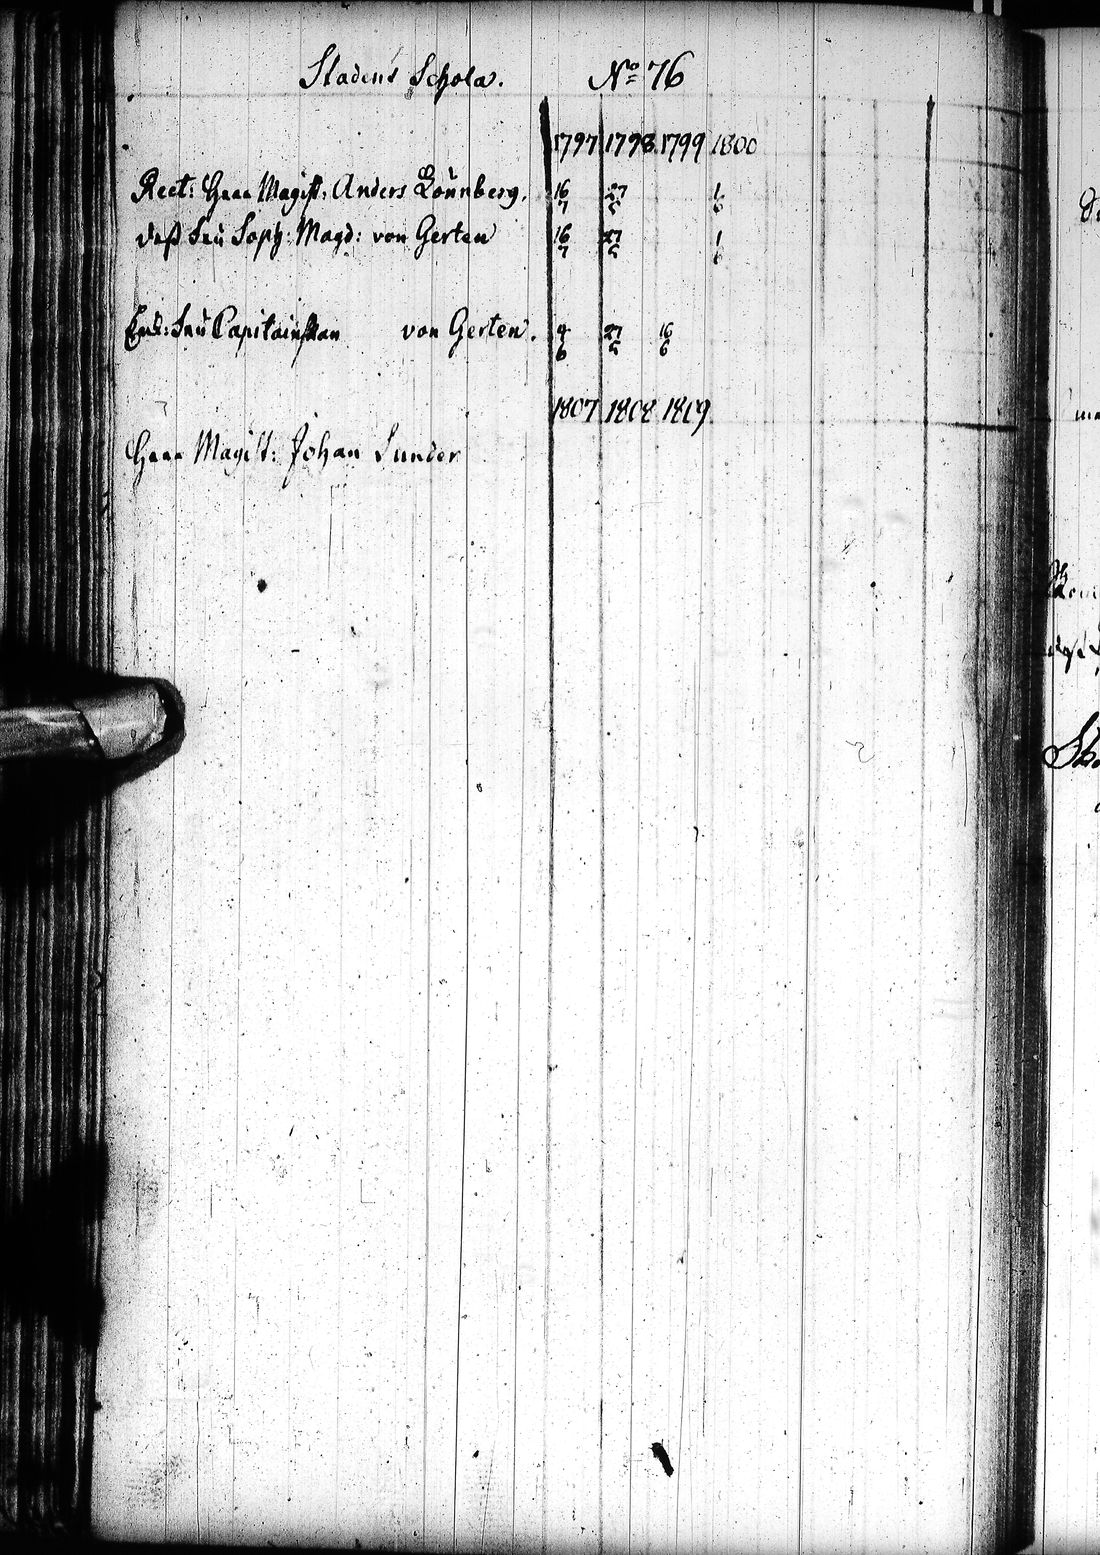 Stadens Schola. No 76
1797 1798 1799 1800
Rect: Herr Magist: Anders Lönnberg. 16/7 27/5 1/6
dess Fru Soph: Magd: von Gerten 16/7 27/5 1/6
Enk: Fru Capitainskan von Gerten. 4/6 27/5 16/6
1807 1808 1809
Herr Magist: Johan Sunder